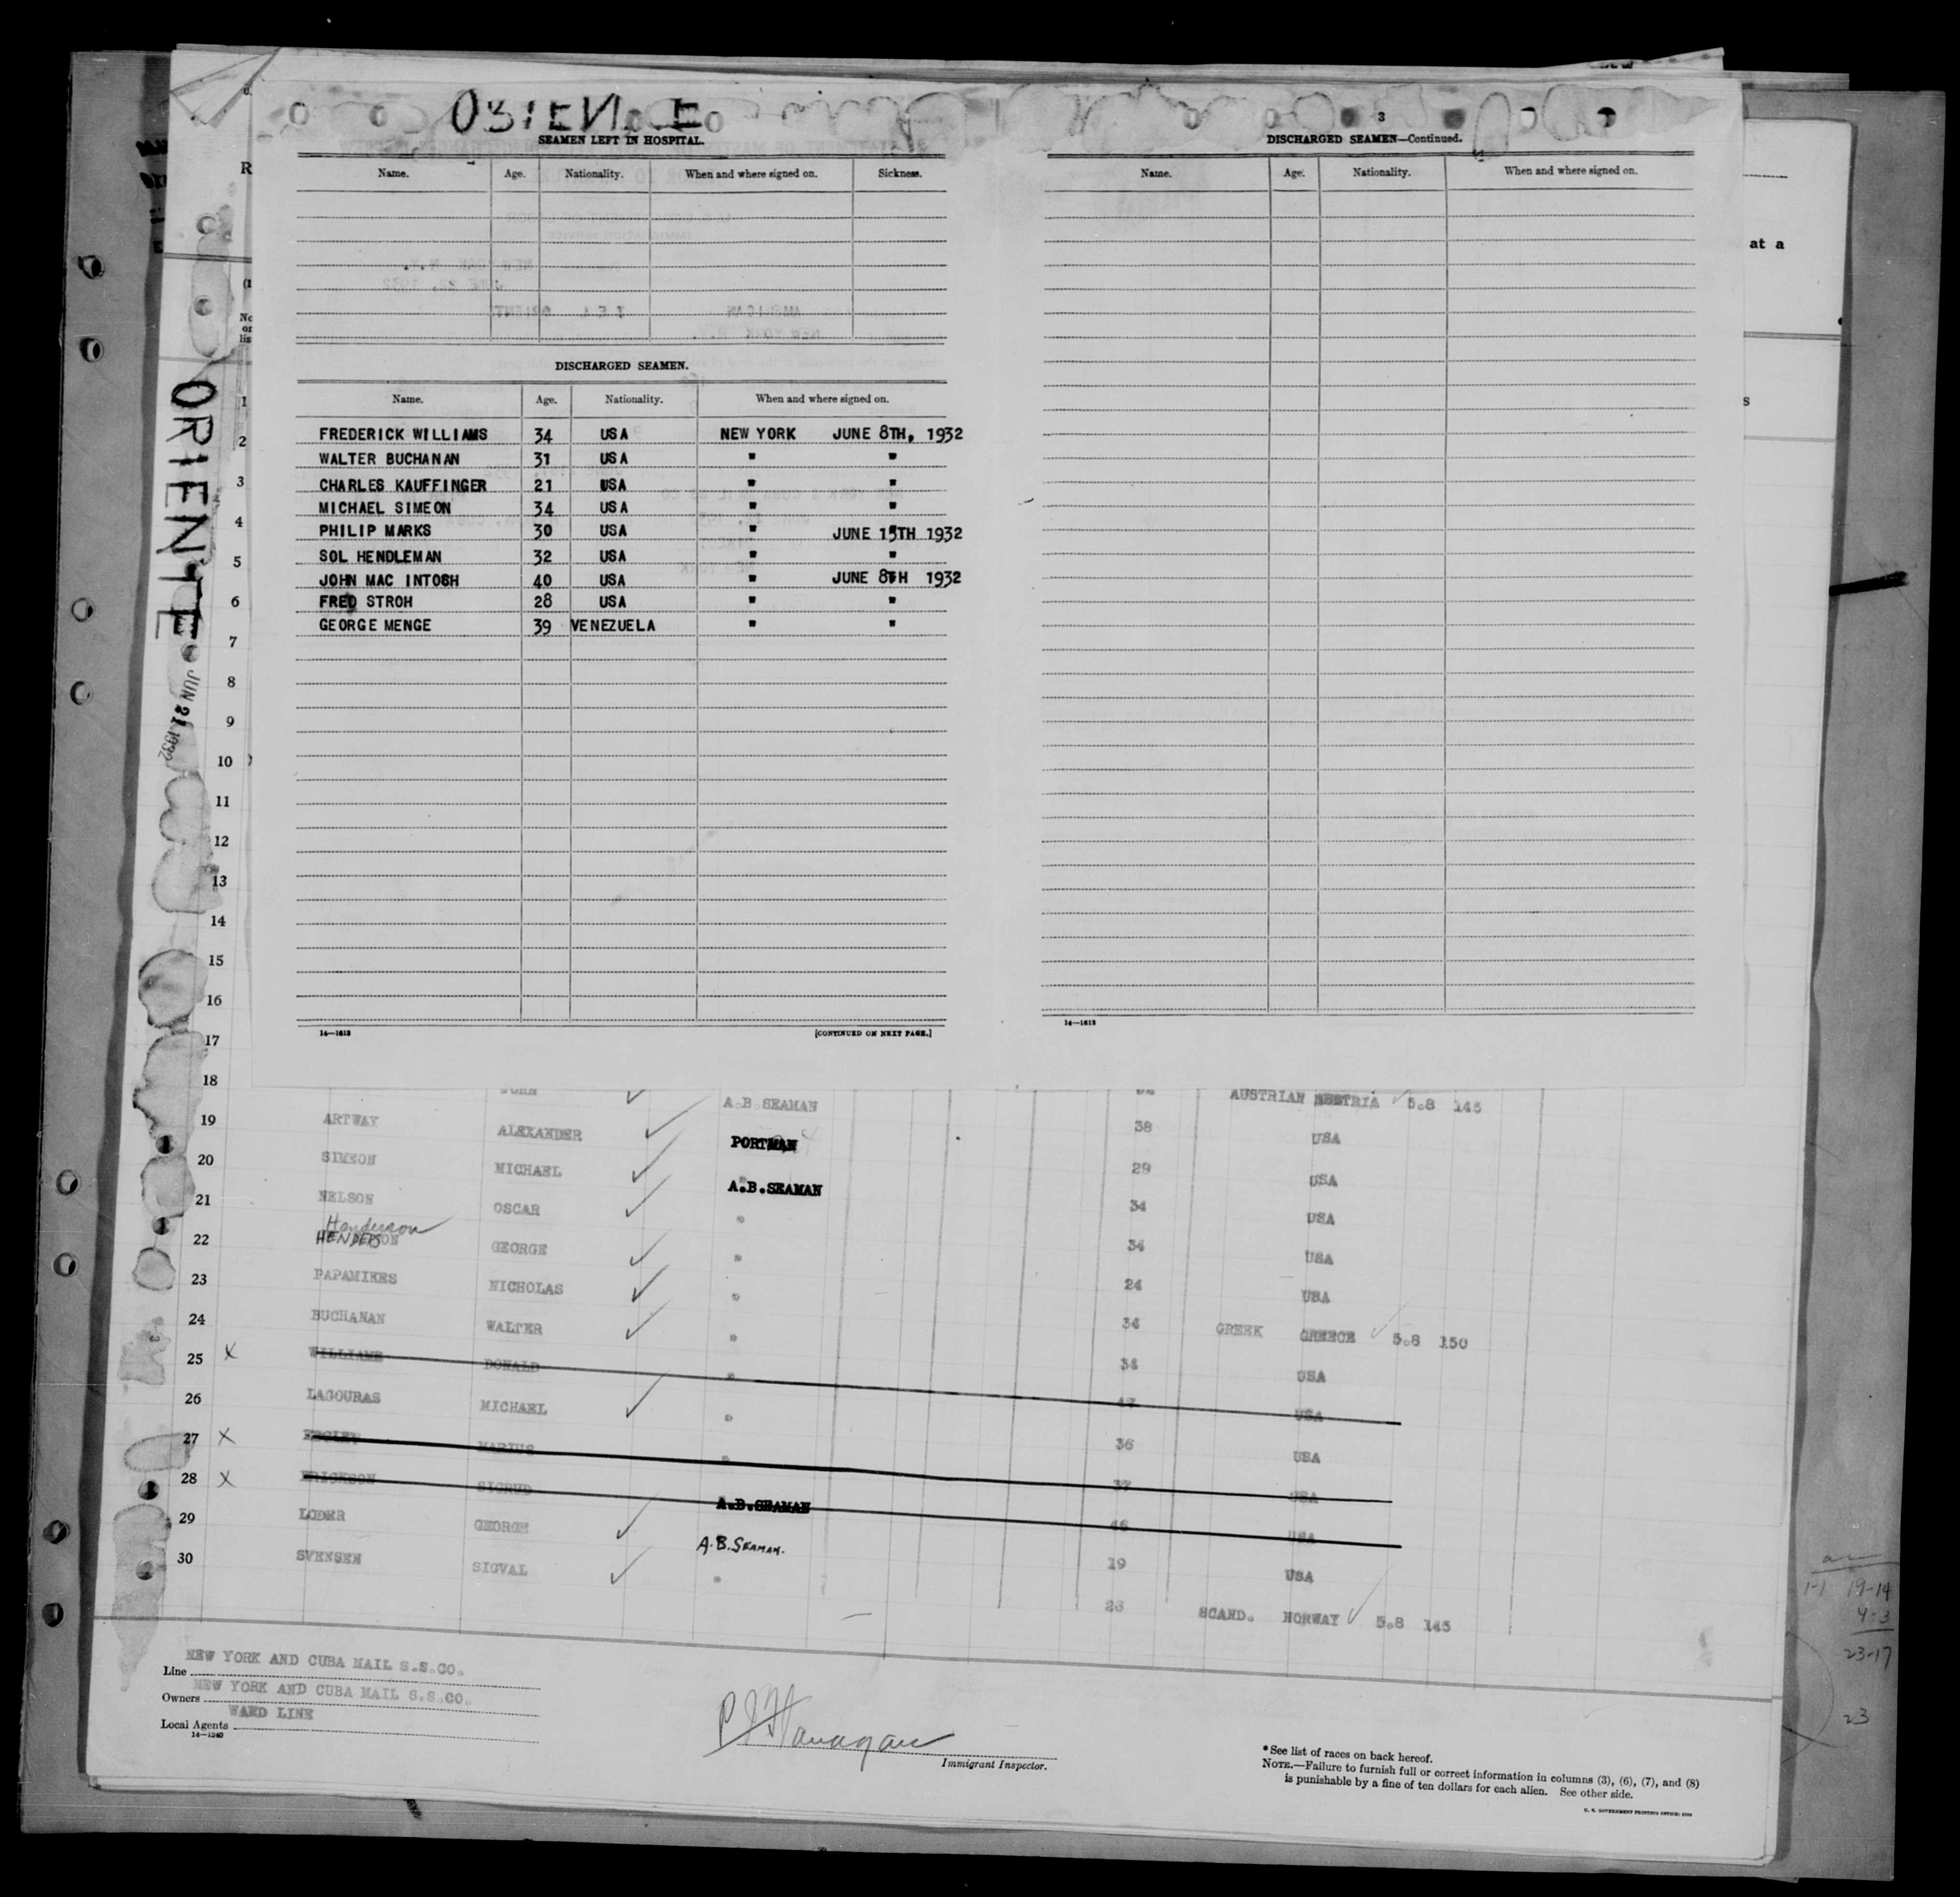 ORIENTE
3
SEAMEN LEFT IN HOSPITAL.
Name. Age. Nationality. When and where signed on. Sickness.
DISCHARGED SEAMEN.
Name. Age. Nationality. When and where signed on.
FREDERICK WILLIAMS 34 USA NEW YORK JUNE 8TH, 1932
WALTER BUCHANAN 31 USA " "
CHARLES KAUFFINGER 21 USA " "
MICHAEL SIMEON 34 USA " "
PHILIP MARKS 30 USA " JUNE 15TH 1932
SOL HENDLEMAN 32 USA " "
JOHN MAC INTOSH 40 USA " JUNE 8TH 1932
FRED STROH 28 USA " "
GEORGE MENGE 39 VENEZUELA " "
14—1613
[CONTINUED ON NEXT PAGE.]
DISCHARGED SEAMEN—Continued.
Name. Age. Nationality. When and where signed on.
14—1613
at a
s
R
ORIENTE
JUN 21 1932
1
2
3
4
5
6
7
8
9
10
11
12
13
14
15
16
17
18 JOHN A.B SEAMAN AUSTRIAN AUSTRIA 5.8 145
19 ARTWAY ALEXANDER PORTMAN 38 USA
20 SIMEON MICHAEL A.B.SEAMAN 29 USA
21 NELSON OSCAR " 34 USA
Henderson
22 HENDERSON GEORGE " 34 USA
23 PAPAMIKES NICHOLAS " 24 USA
24 BUCHANAN WALTER " 34 GREEK GREECE 5.8 150
25 X WILLIAMS DONALD " 34 USA
26 LAGOURAS MICHAEL " 47 USA
27 X MARIUS " 36 USA
28 X ERICKSON SIGRUD A.B.SEAMAN 37 USA
29 LODER GEORGE A.B.SEAMAN. 46 USA
30 SVENSEN SIGVAL " 19 USA
23 SCAND. NORWAY 5.8 145
Line NEW YORK AND CUBA MAIL S.S.CO.
Owners NEW YORK AND CUBA MAIL S.S.CO.
Local Agents WARD LINE
14—1240
P J Flanagan
Immigrant Inspector.
*See list of races on back hereof.
NOTE.—Failure to furnish full or correct information in columns (3), (6), (7), and (8)
is punishable by a fine of ten dollars for each alien. See other side.
1-1 19-14
4-3
23-17
23